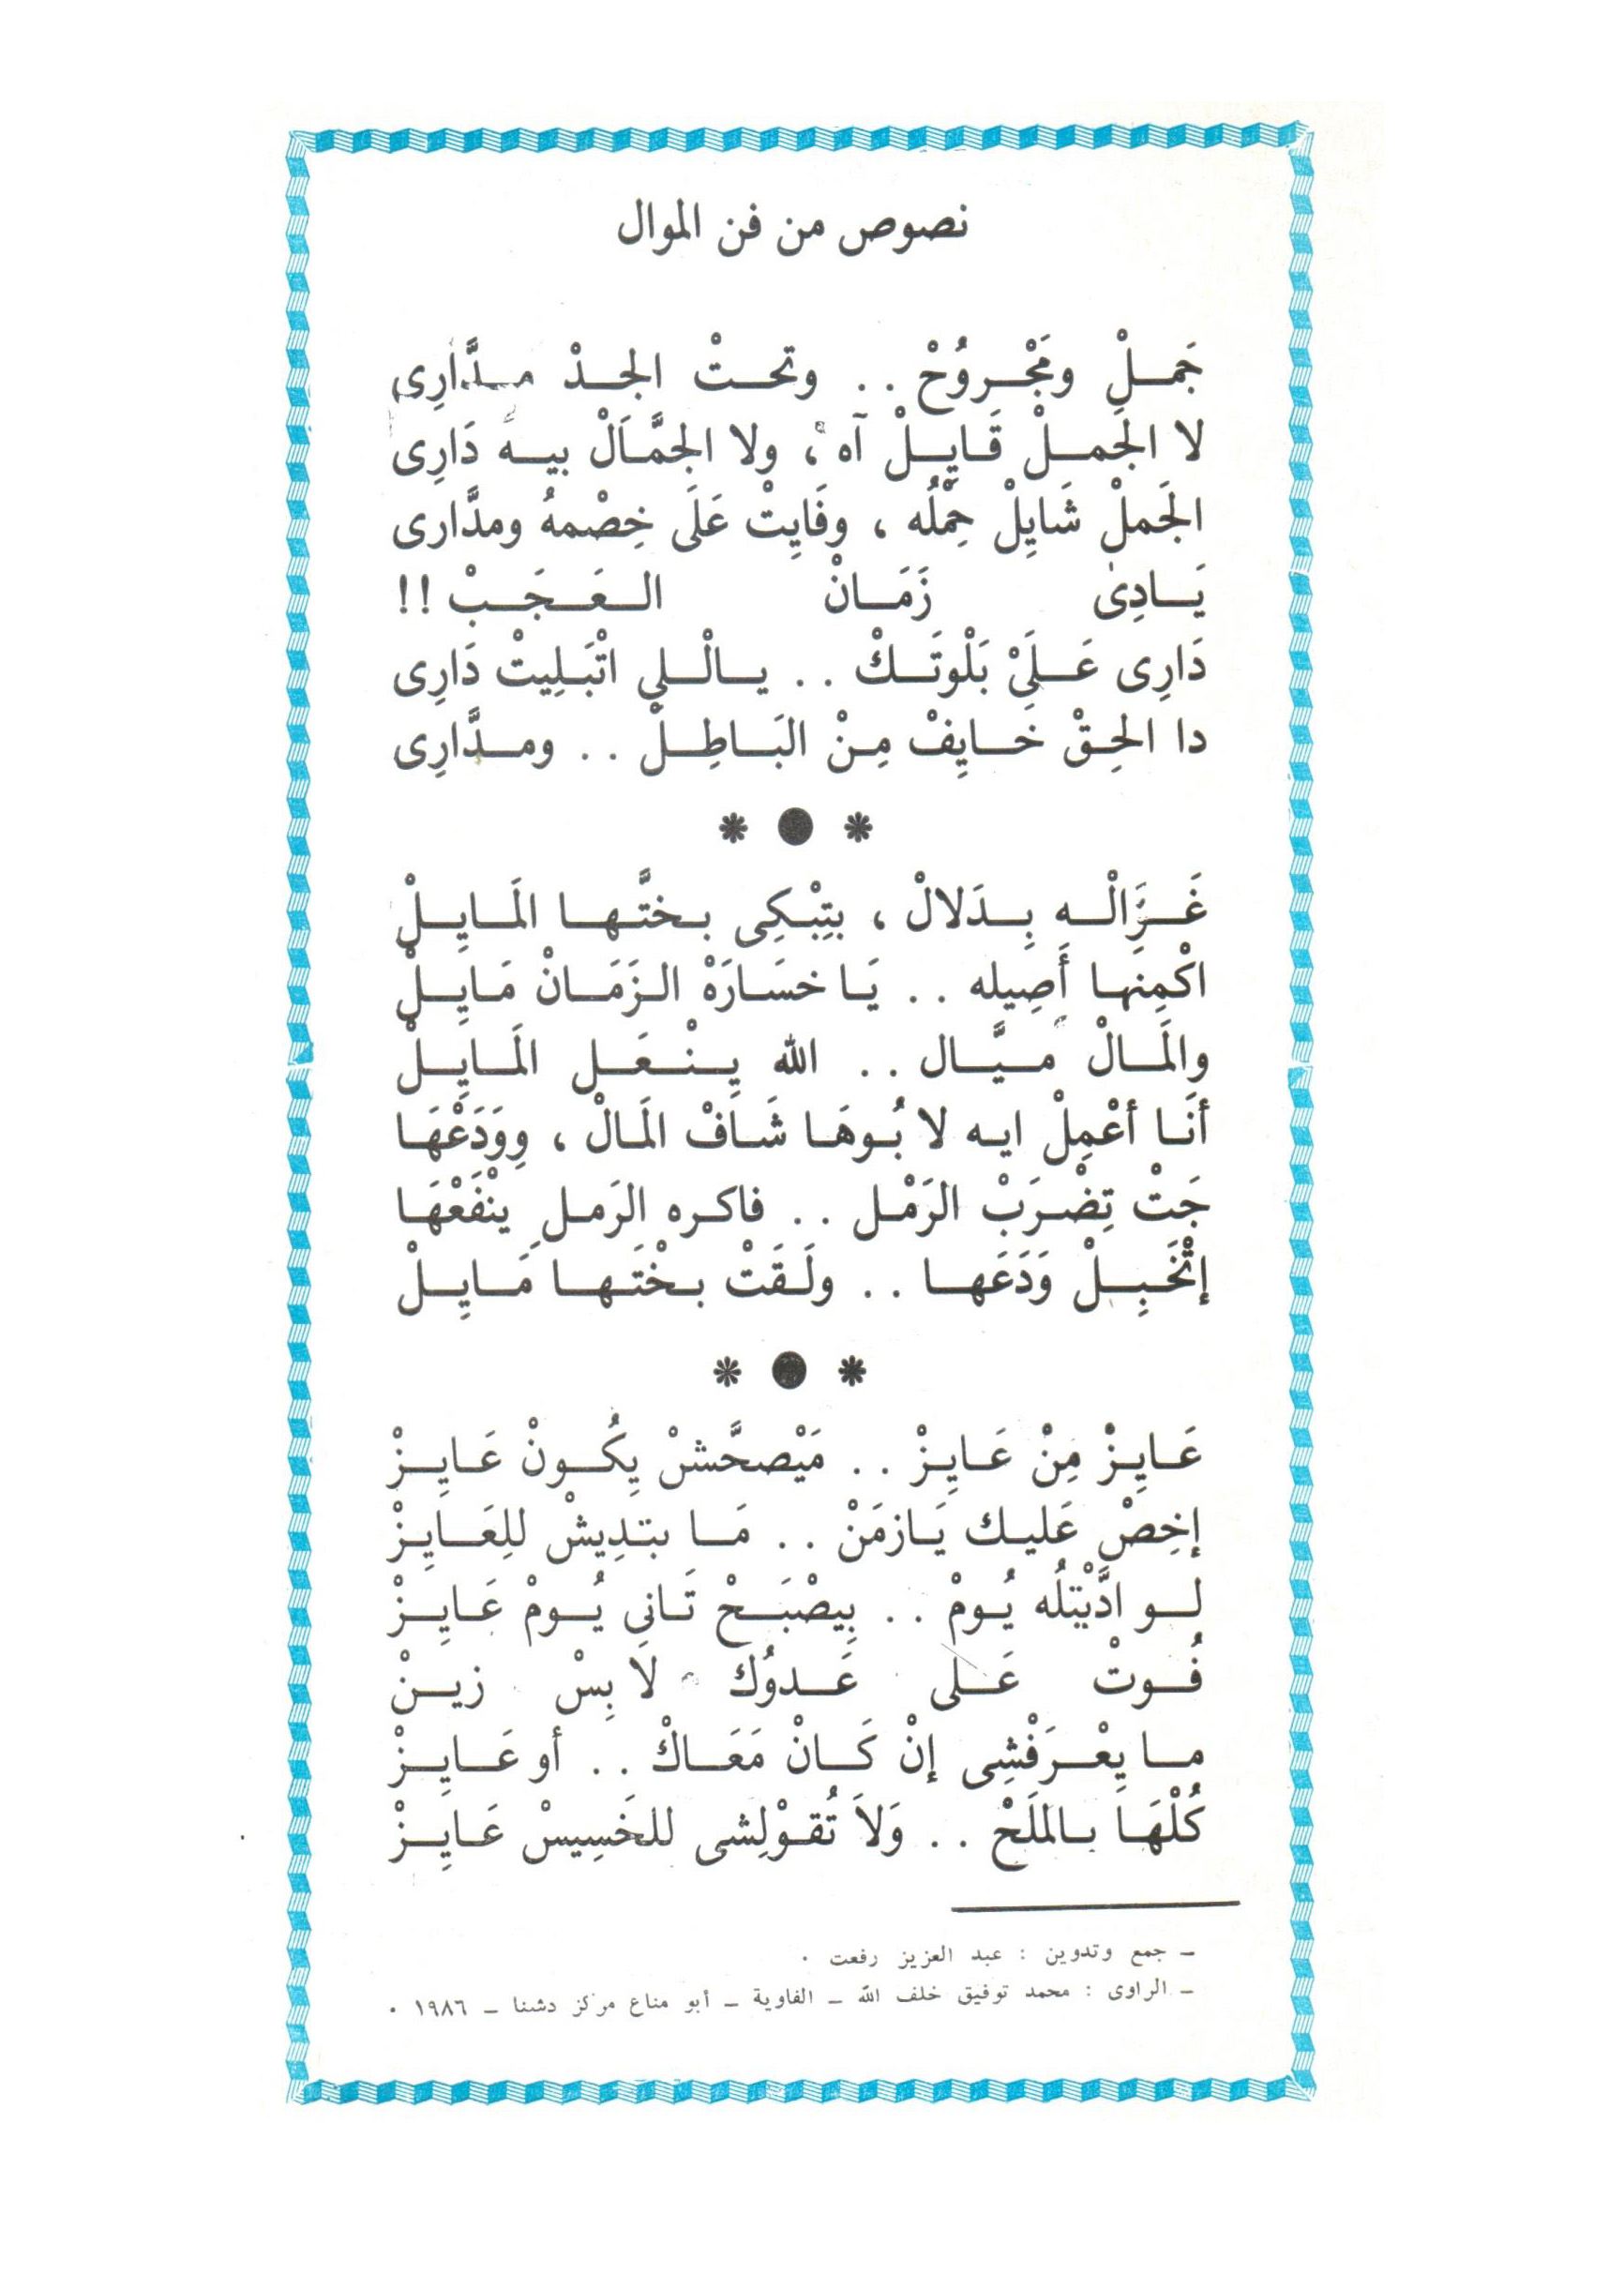 نصوص من فن الموال
جَمـلْ ومَجْـروُحْ . . وتحـتْ الجـدْ مـدَّارِى
لا الجَمـلْ قَـايِـلْ آه ، ولا الجمَّـالْ بيـه دَارِى
الجَملْ شَايِلْ حِمْلُه ، وفَايِتْ عَلَى خِصْمهُ ومدَّارى
يَـادِىْ زَمَـانْ العَجَـبْ !!
دَارِى عَـلَىْ بَلْوتَـكْ . . يـالْـلى اتْبَـلِيتْ دَارِى
دا الحِـقْ خَـايِفْ مِـنْ البَـاطِـلْ . . ومـدَّارِى
* ● *
غَـزَالْـه بِـدَلالْ ، بتِبْـكِى بـختَّهـا المَـايِـلْ
اكْمِنهـا أَصِيله . . يَـا خسَـارَهْ الـزَمَـانْ مَـايِـلْ
والمَـالْ ميَّـال . . الله يِنْعَـل المَـايِـلْ
أنَـا أعْمِلْ ايـه لا بُـوهَـا شَـافْ المَـالْ ، وِوَدَعْهَـا
جَتْ تِضْـرَبْ الرَمْـل . . فاكـره الرَمـل يِنْفَعْهَـا
إتْخَـبِـلْ وَدَعَهـا . . ولَـقَتْ بـخْتَهـا مَـايِـلْ
* ● *
عَـايِـزْ مِنْ عَـايِـزْ . . مَيْصحَّشْ يِكُـونْ عَـايِـزْ
إخِصْ عَليـك يَـازمَنْ . . مَـا بتـدِيشْ للِعَـايِـزْ
لـو ادَّيْتِلُه يُـومْ . . بِيصْبَـحْ تَـانى يُـومْ عَـايِـزْ
فُـوتْ عَـلى عَـدوُك لَا بِسْ زيـنْ
مـا يِعْـرَفْشِى إنْ كَـانْ مَعَـاكْ . . أو عَـايِـزْ
كُلْهَـا بـالملَحْ . . وَلاَ تُقـوْلِشى للخَسِيسْ عَـايِـزْ
ـ جمع وتدوين : عبد العزيز رفعت .
ـ الراوى : محمد توفيق خلف الله ـ الفاوية ـ أبو مناع مركز دشنا ـ ١٩٨٦ .